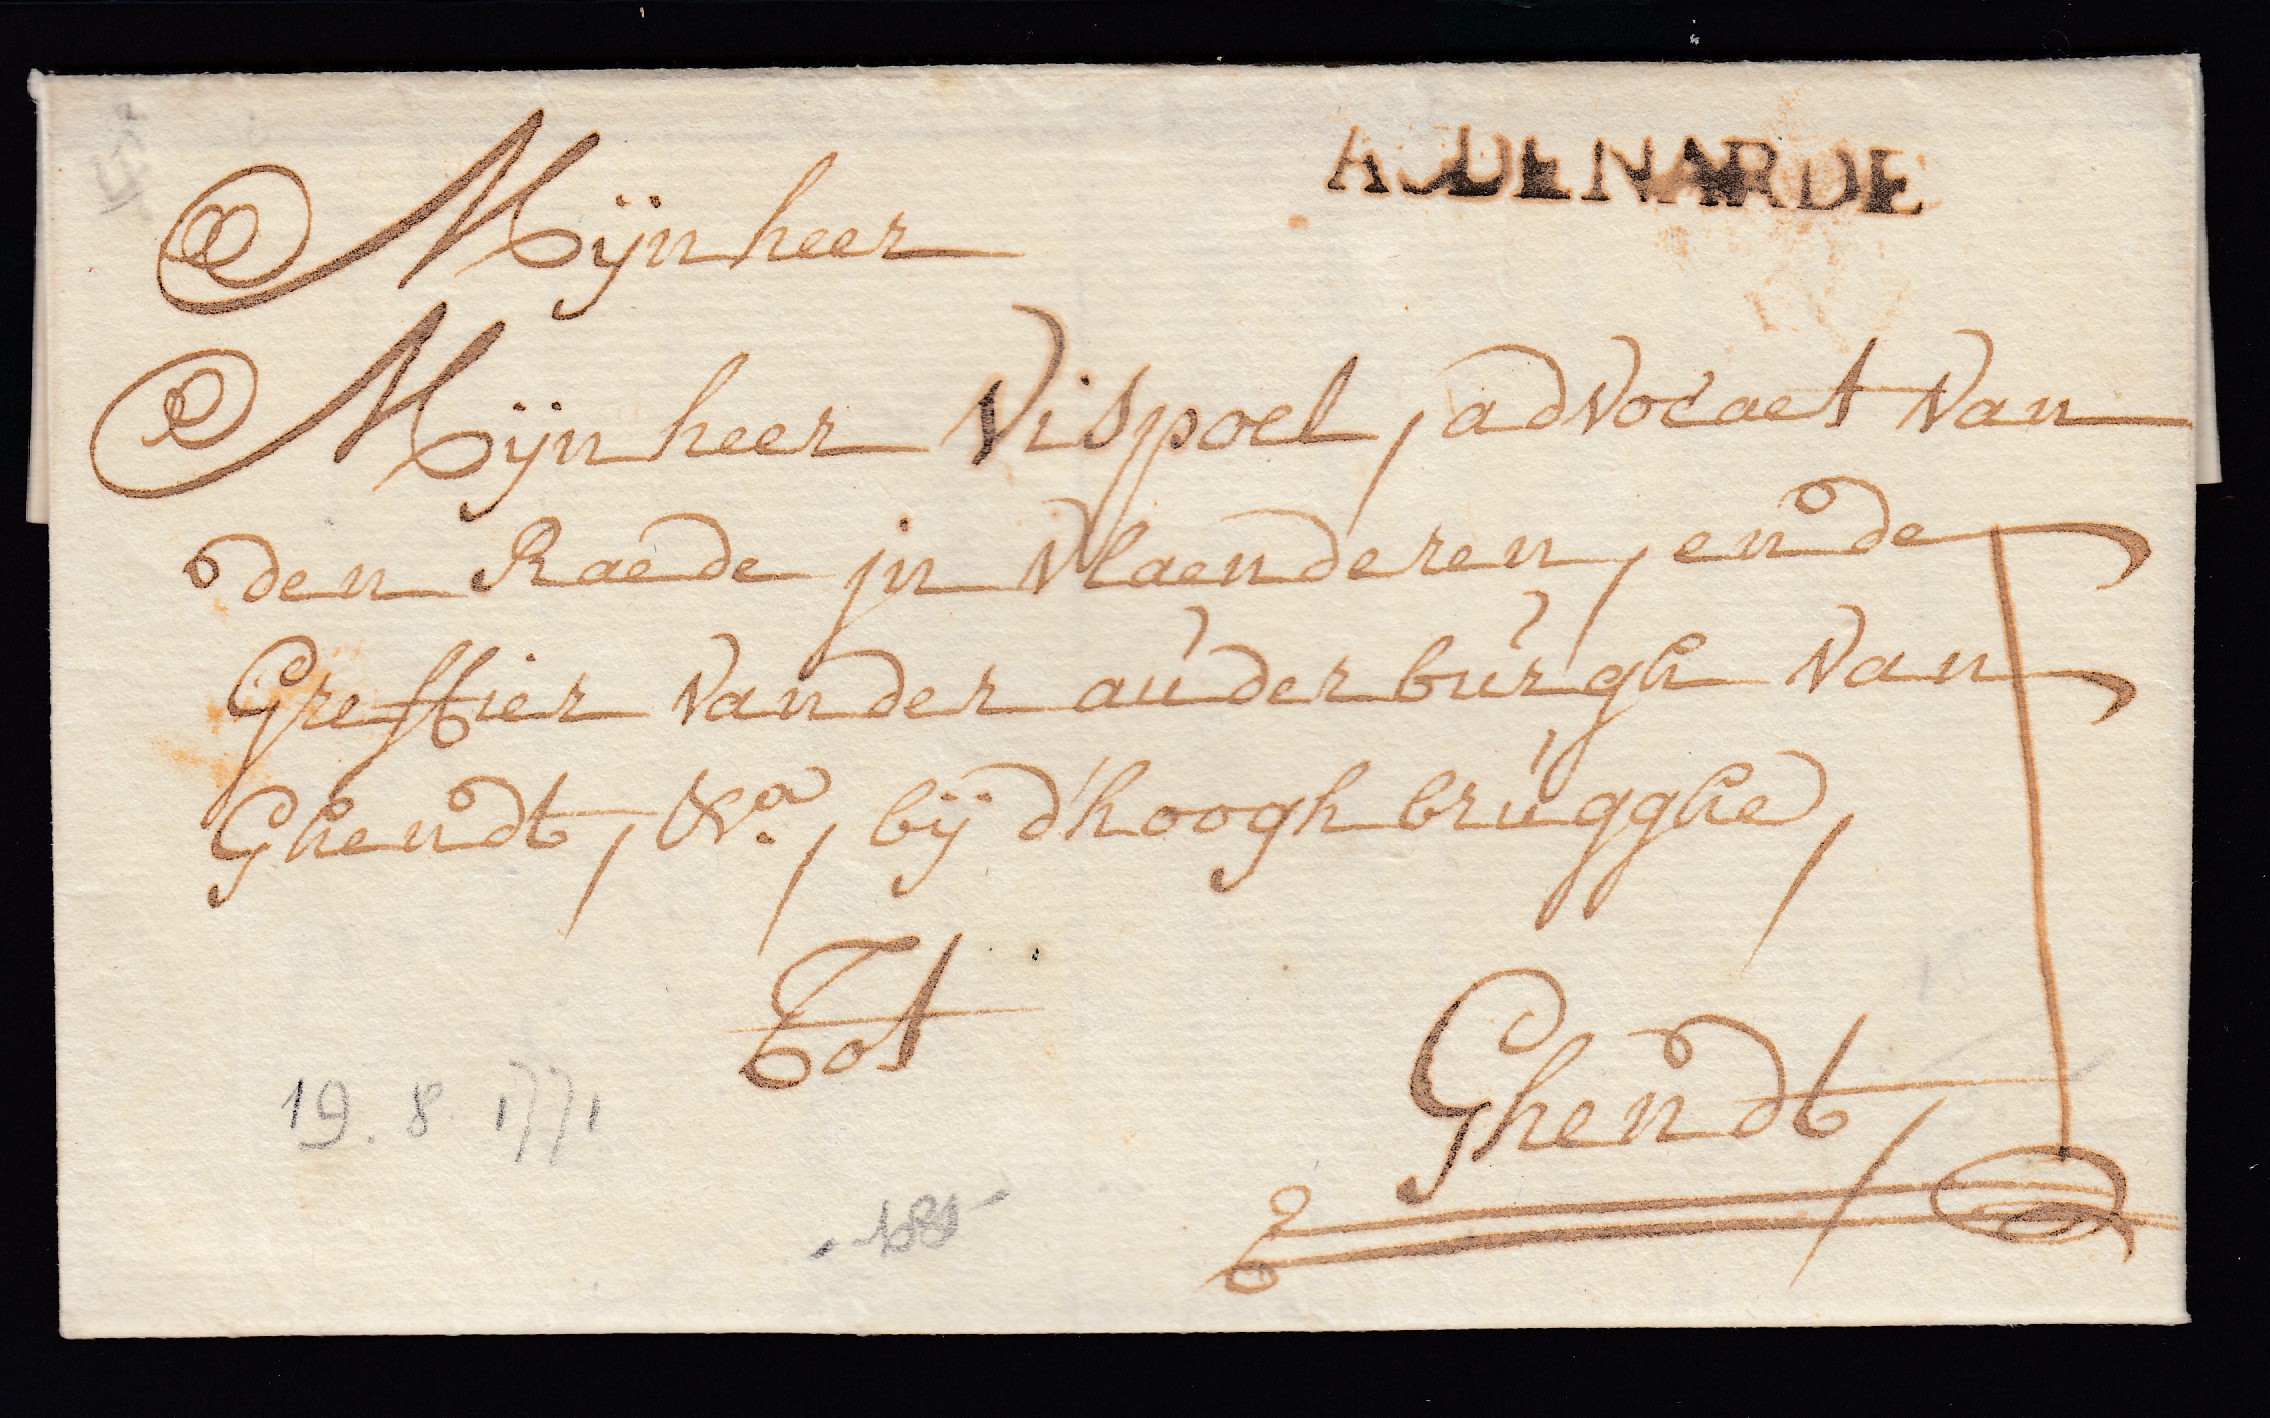 AUDENARDE
Mijnheer
Mijnheer Vispoel, advocaet van
den Raede jn Vlaenderen, ende
Greffier vander auderburgh van
Ghendt, &a., bij d'hooghbrugghe,
Tot
Ghendt,
19.8.1771